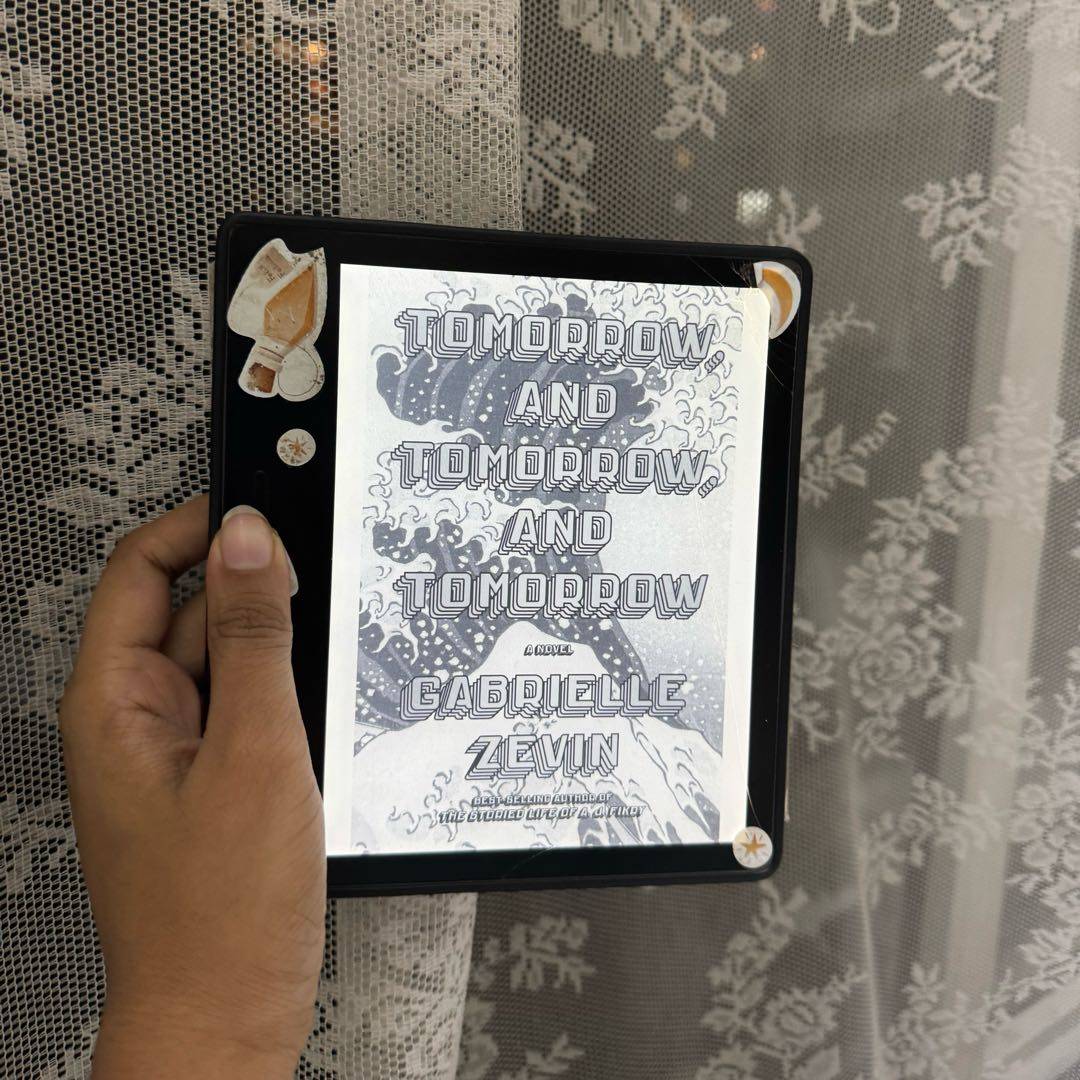 TOMORROW,
AND
TOMORROW,
AND
TOMORROW
A NOVEL
GABRIELLE
ZEVIN
BEST-SELLING AUTHOR OF
THE STORIED LIFE OF A. J. FIKRY